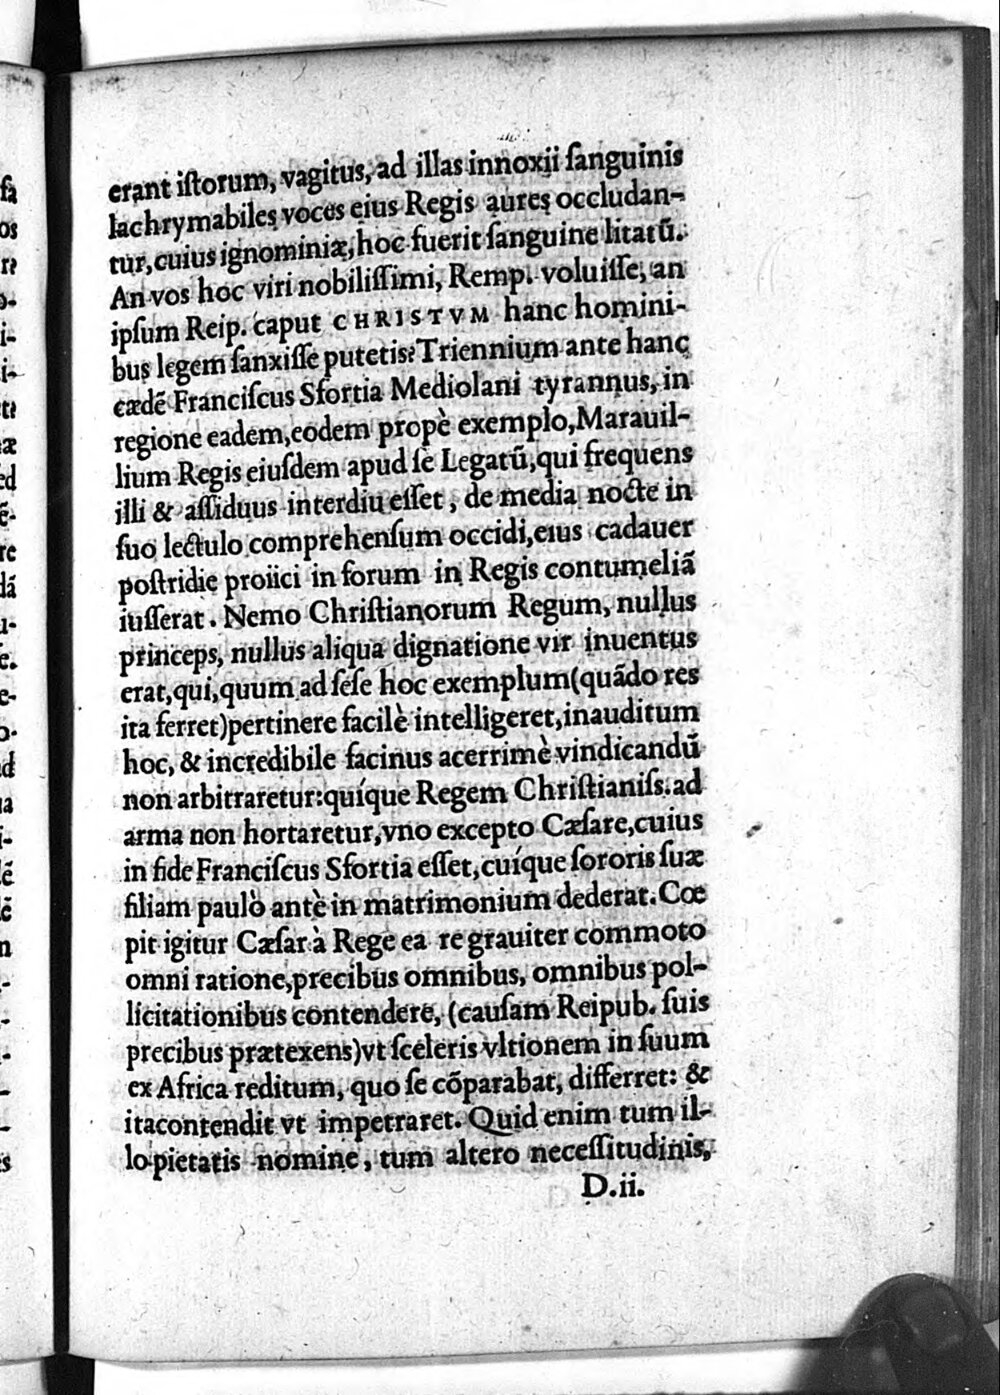 erant iſtorum, vagitus, ad illas innoxij ſanguinis
lachrymabiles voces eius Regis aures occludan-
tur, cuius ignominiæ, hoc fuerit ſanguine litatū.
An vos hoc viri nobiliſſimi, Remp. voluiſſe, an
ipſum Reip. caput CHRISTVM hanc homini-
bus legem ſanxiſſe putetis? Triennium ante hanc
cædē Franciſcus Sfortia Mediolani tyrannus, in
regione eadem, eodem propè exemplo, Marauil-
lium Regis eiuſdem apud ſe Legatū, qui frequens
illi & aſſiduus interdiu eſſet, de media nocte in
ſuo lectulo comprehenſum occidi, eius cadauer
poſtridie proiici in forum in Regis contumeliā
iuſſerat. Nemo Chriſtianorum Regum, nullus
princeps, nullus aliqua dignatione vir inuentus
erat, qui, quum ad ſeſe hoc exemplum (quādo res
ita ferret) pertinere facilè intelligeret, inauditum
hoc, & incredibile facinus acerrimè vindicandū
non arbitraretur: quíque Regem Chriſtianiſs. ad
arma non hortaretur, vno excepto Cæſare, cuius
in fide Franciſcus Sfortia eſſet, cuíque ſororis ſuæ
filiam paulò antè in matrimonium dederat. Cœ
pit igitur Cæſar à Rege ea re grauiter commoto
omni ratione, precibus omnibus, omnibus pol-
licitationibus contendere, (cauſam Reipub. ſuis
precibus prætexens) vt ſceleris vltionem in ſuum
ex Africa reditum, quo ſe cōparabat, differret: &
itacontendit vt impetraret. Quid enim tum il-
lo pietatis nomine, tum altero neceſſitudinis,
D.ii.